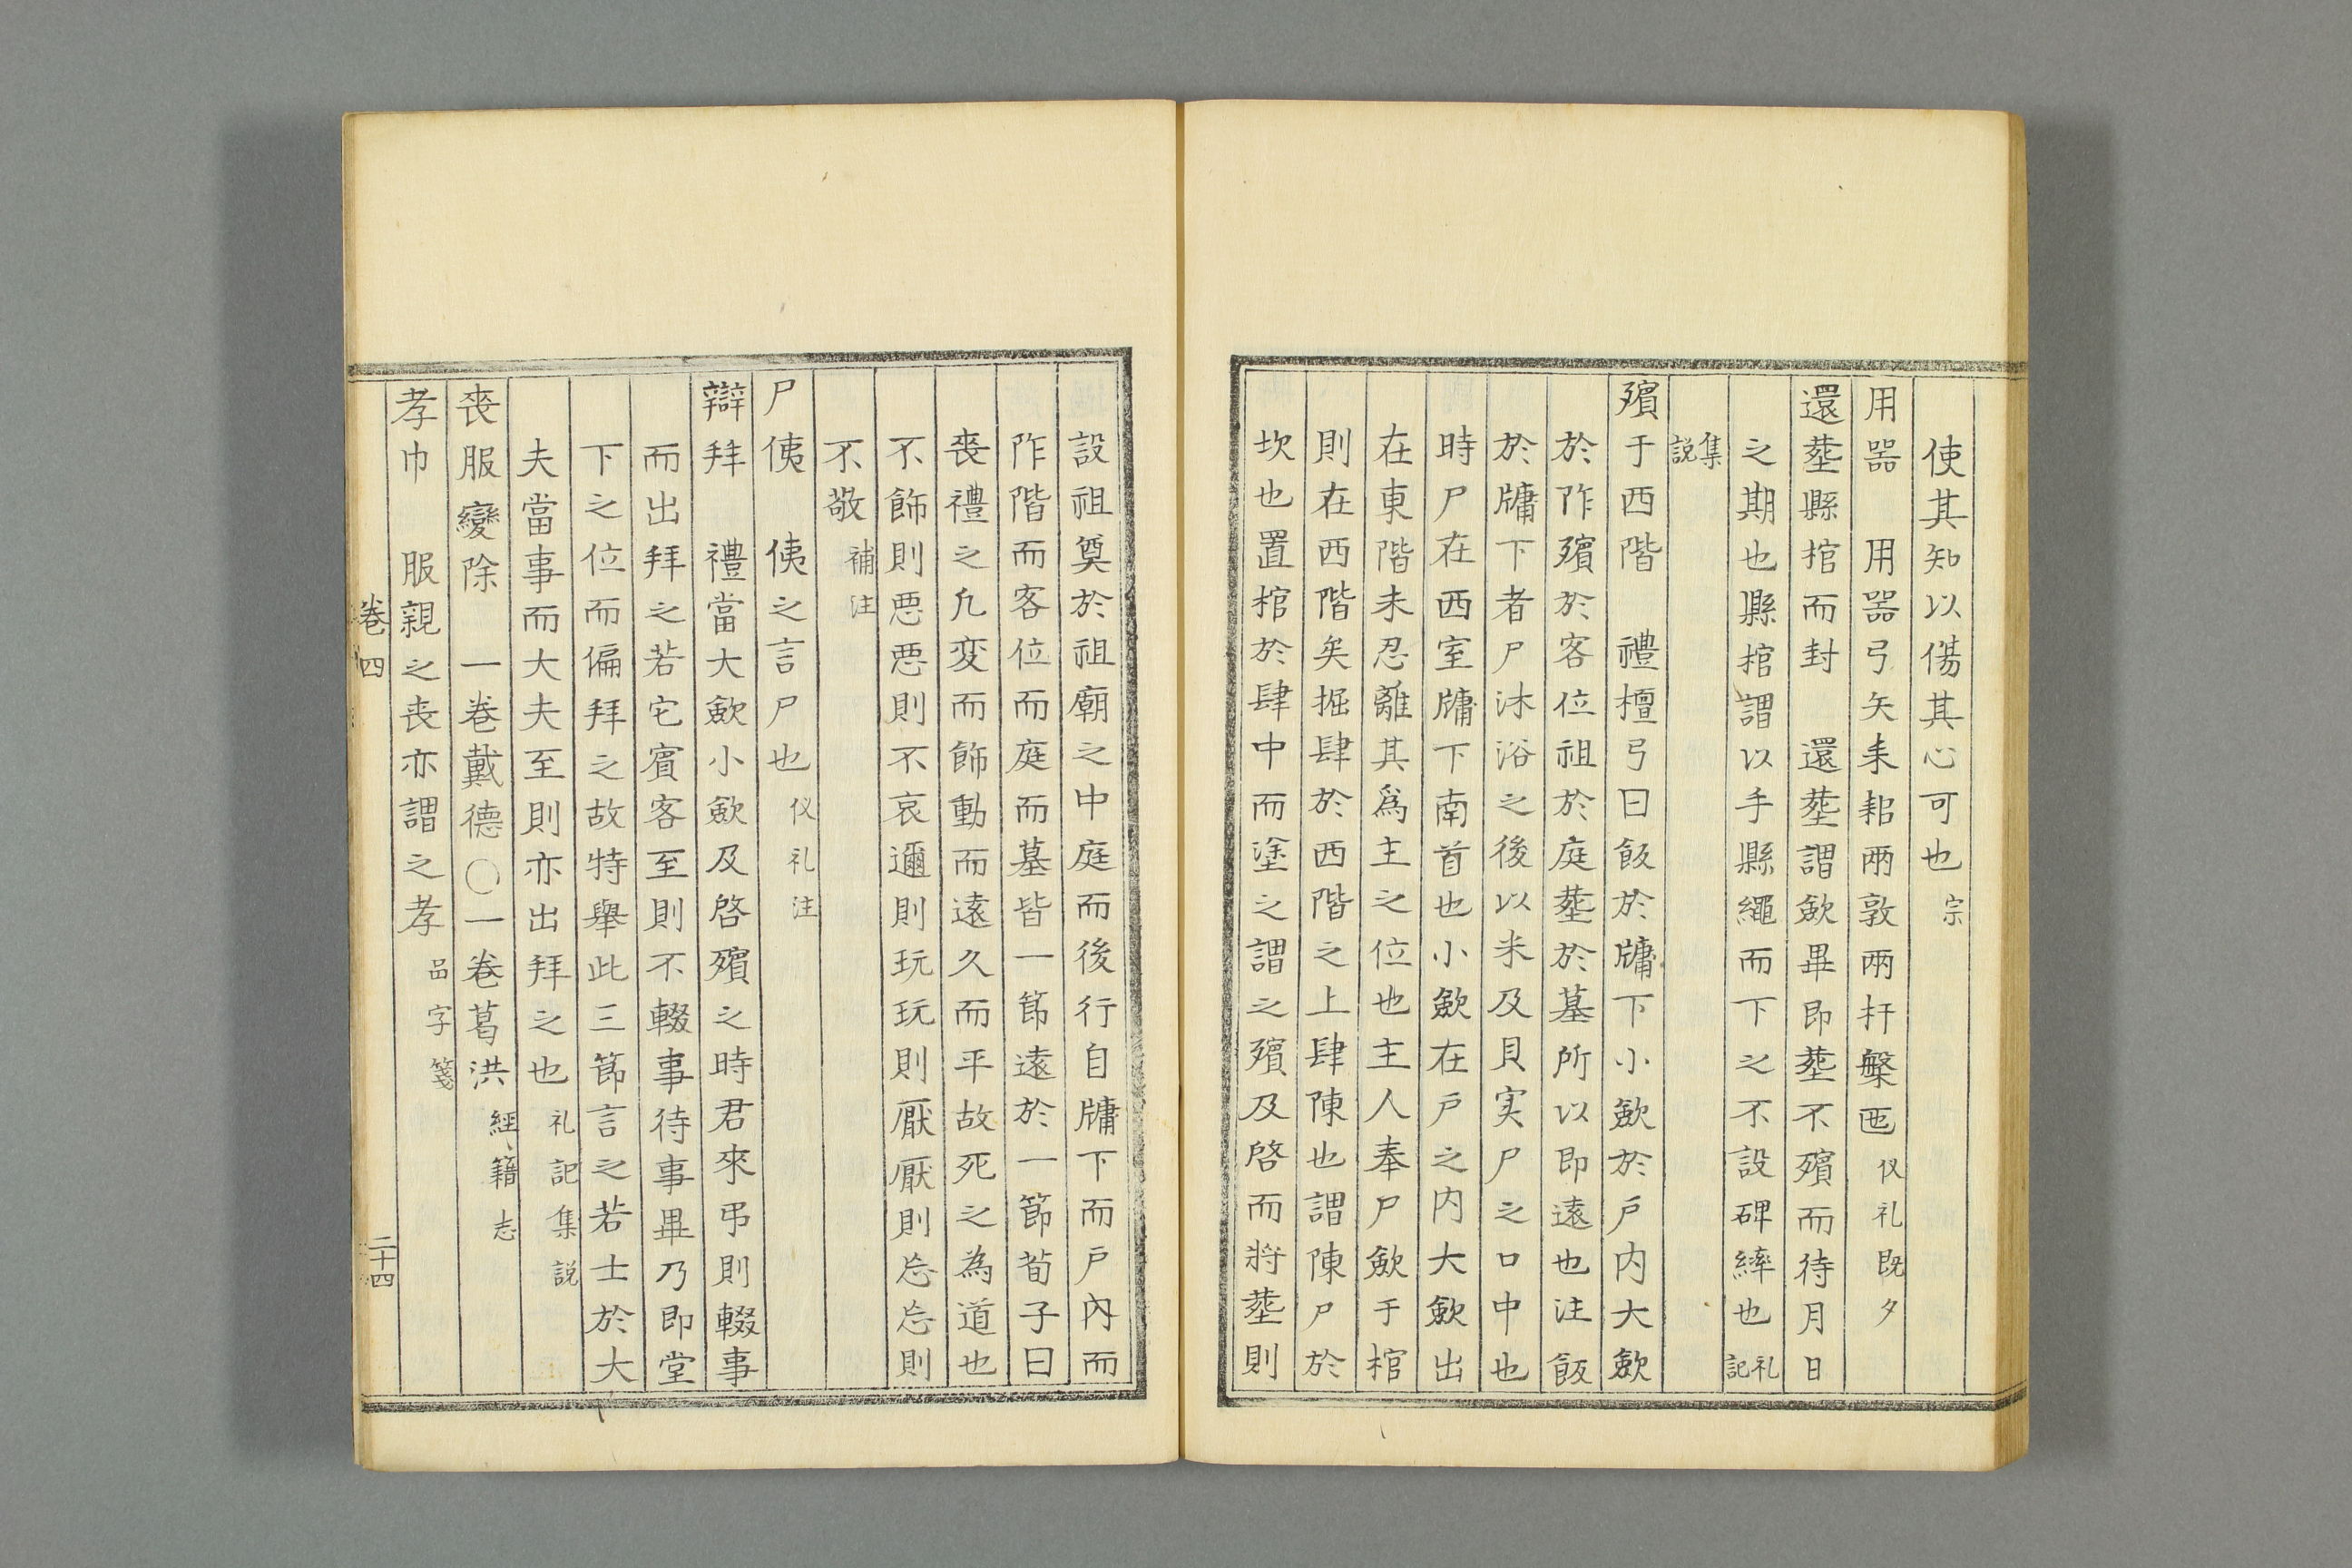 使其知以傷其心可也 宗
用器 用器弓矢耒耜兩敦兩杅槃匜 仪礼既夕
還塟縣棺而封 還塟謂歛畢即塟不殯而待月日
之期也縣棺謂以手縣繩而下之不設碑繂也 礼記
集説
殯于西階 禮檀弓曰飯於牖下小歛於戶內大歛
於阼殯於客位祖於庭塟於墓所以即遠也注飯
於牖下者尸沐浴之後以米及貝实尸之口中也
時尸在西室牖下南首也小歛在戶之內大歛出
在東階未忍離其爲主之位也主人奉尸歛于棺
則在西階矣掘肂於西階之上肂陳也謂陳尸於
坎也置棺於肂中而塗之謂之殯及啓而將塟則
設祖奠於祖廟之中庭而後行自牖下而戶內而
阼階而客位而庭而墓皆一節遠於一節荀子曰
丧禮之凢変而飾動而遠久而平故死之為道也
不飾則悪悪則不哀邇則玩玩則厭厭則忘忘則
不敬 補注
尸侇 侇之言尸也 仪礼注
辯拜 禮當大歛小歛及啓殯之時君來弔則輟事
而出拜之若它賓客至則不輟事待事畢乃即堂
下之位而徧拜之故特舉此三節言之若士於大
夫當事而大夫至則亦出拜之也 礼記集説
丧服變除 一卷戴德〇一卷葛洪 経籍志
孝巾 服親之丧亦謂之孝 品字箋
卷四
二十四